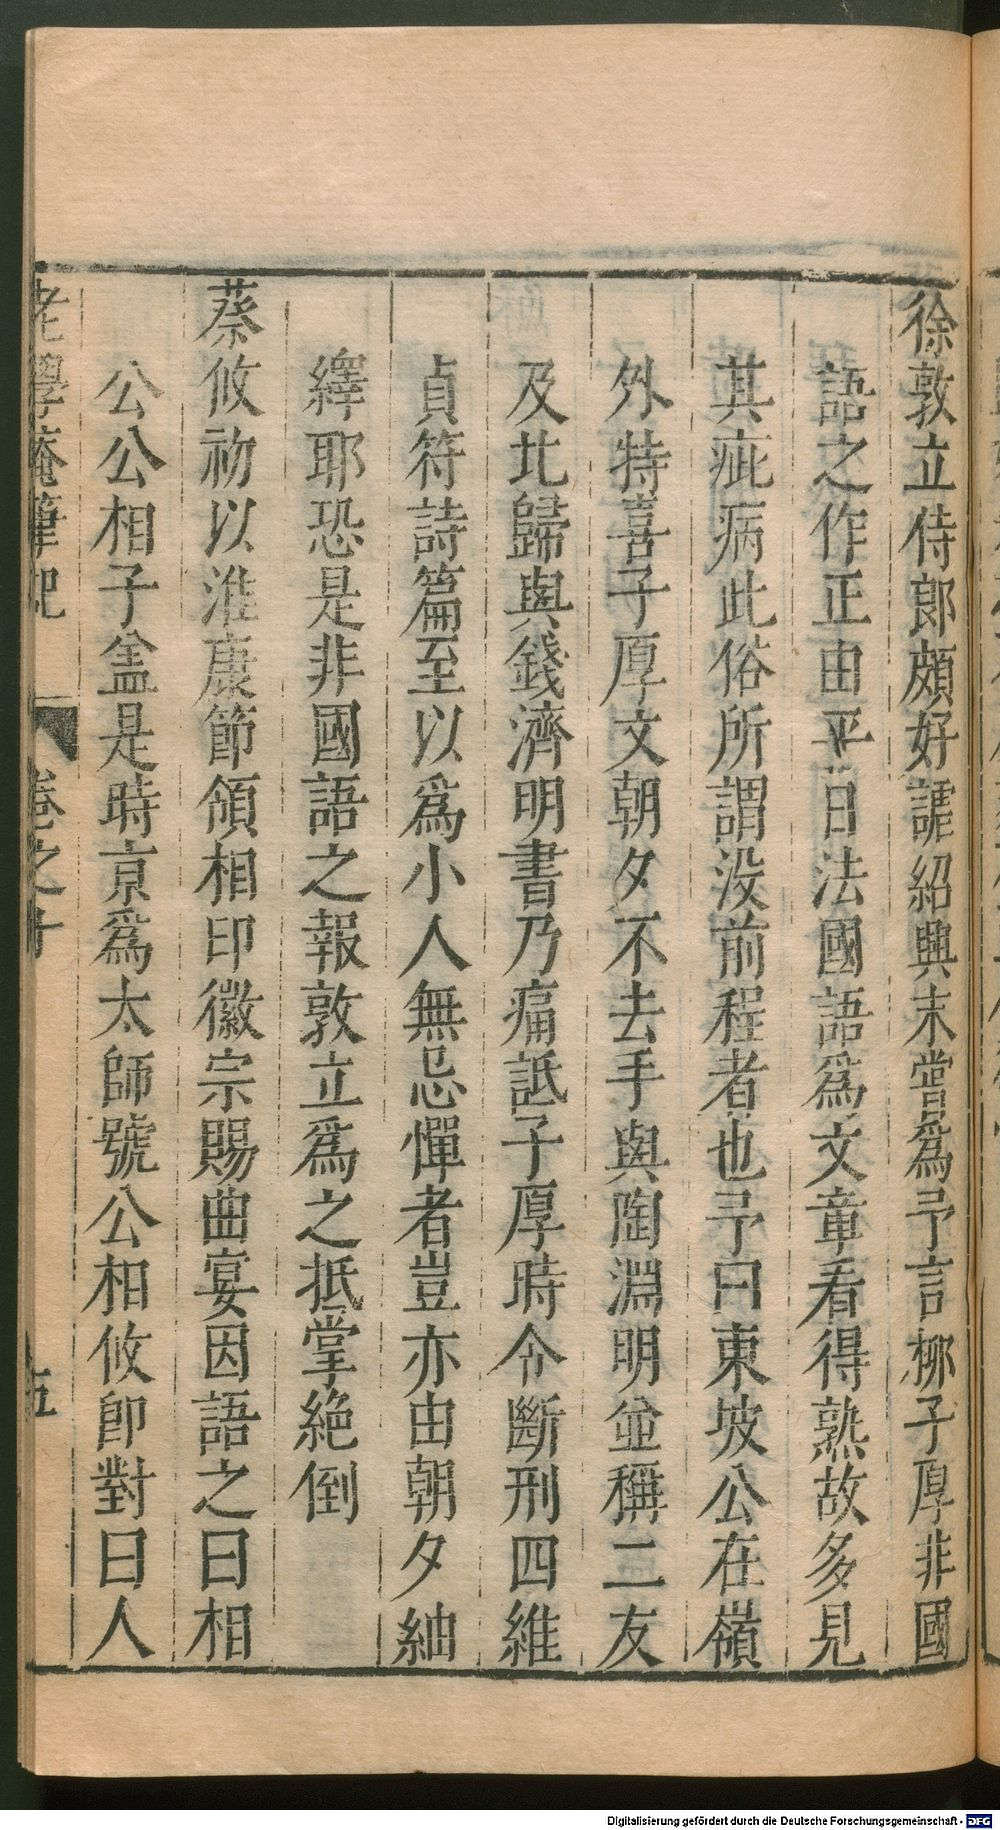 徐敦立侍郎頗好謔紹興末嘗爲予言柳子厚非國
語之作正由平日法國語爲文章看得熟故多見
其疵病此俗所謂没前程者也予曰東坡公在嶺
外特喜子厚文朝夕不去手與陶淵明並稱二友
及北歸與錢濟明書乃痛詆子厚時令斷刑四維
貞符詩篇至以爲小人無忌憚者豈亦由朝夕紬
繹耶恐是非國語之報敦立爲之抵掌絶倒
蔡攸初以淮康節領相印徽宗賜曲宴因語之曰相
公公相子盖是時京爲太師號公相攸卽對曰人
老學庵筆記 卷之十 五
Digitalisierung gefördert durch die Deutsche Forschungsgemeinschaft - DFG